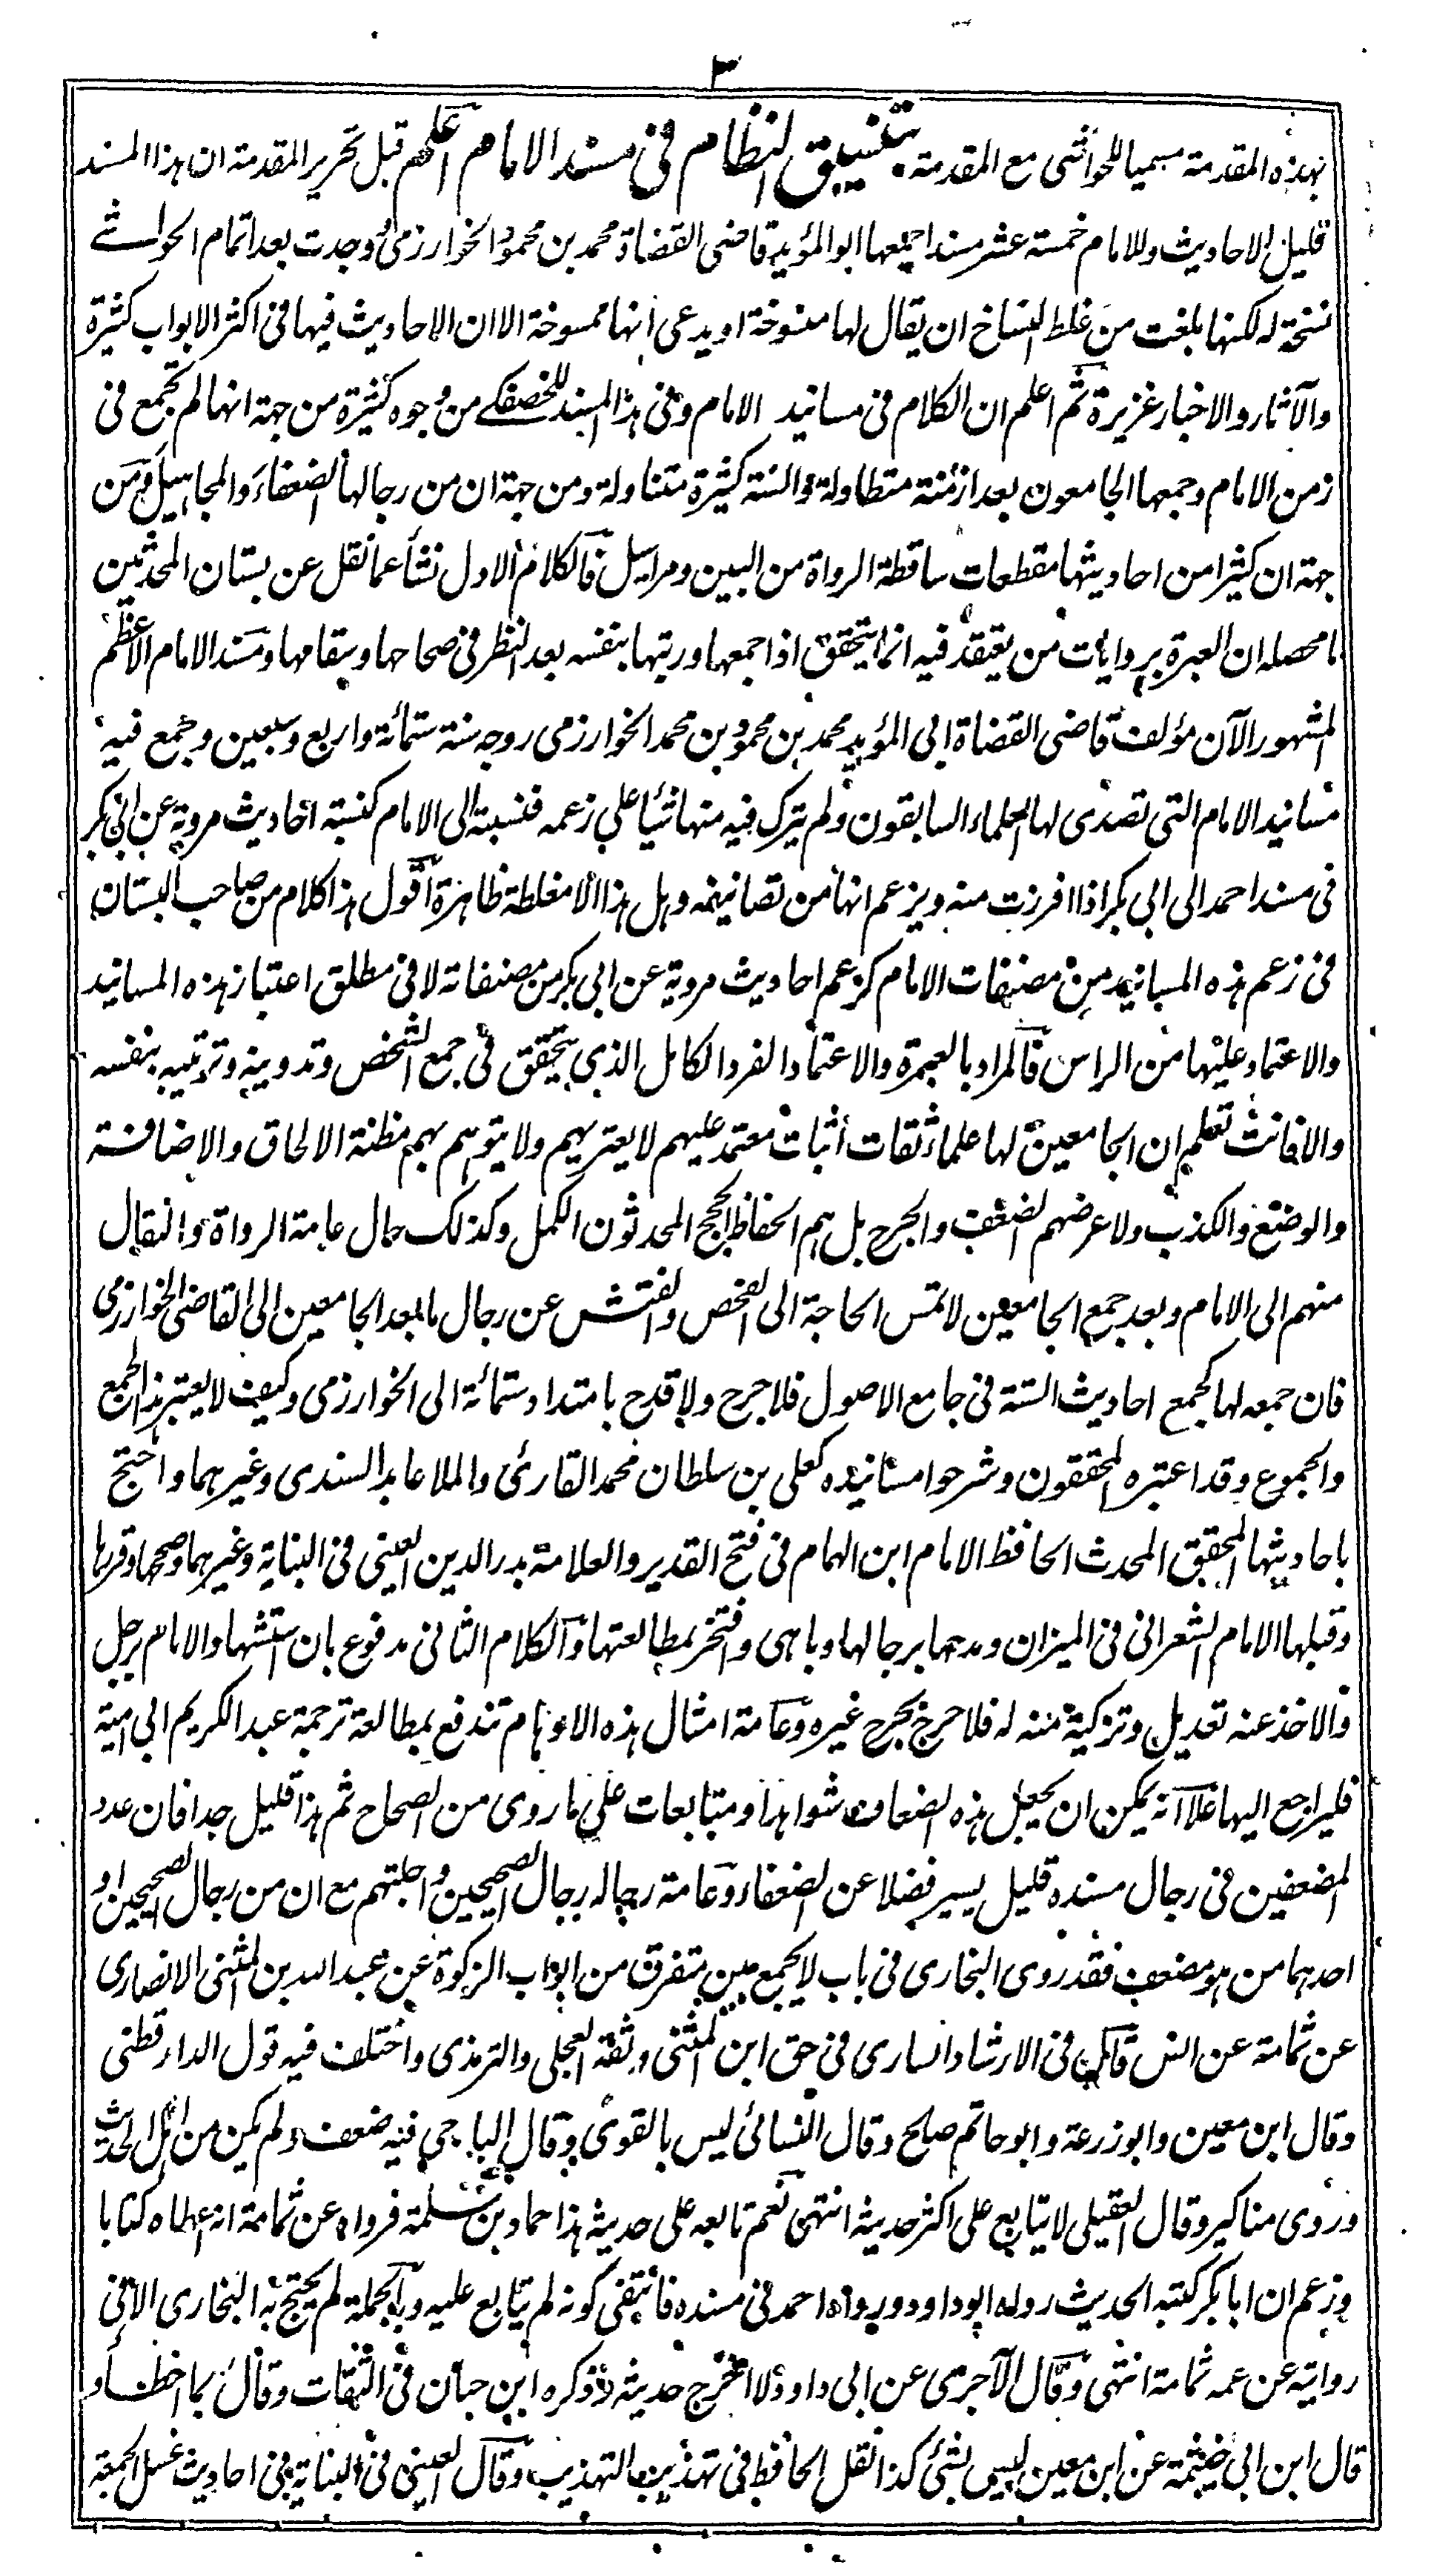 ٣
بهذه المقدمة مسميا للحواشي مع المقدمة بتنسيق النظام في مسند الامام اعلم قبل تحرير المقدمة ان هذا المسند
قليل الاحاديث وللامام خمسة عشر مسندا جمعها ابو المؤيد قاضي القضاة محمد بن محمود الخوارزمي وجدت بعد اتمام الحواشي
نسخة له لكنها بلغت من غلط النساخ ان يقال لها منسوخة او يدعى انها ممسوخة الا ان الاحاديث فيها في اكثر الابواب كثيرة
والآثار والاخبار غزيرة ثم اعلم ان الكلام في مسانيد الامام وفي هذا المسند للحصفكي من وجوه كثيرة من جهة انها لم تجمع في
زمن الامام وجمعها الجامعون بعد ازمنة متطاولة والسنة كثيرة متناولة ومن جهة ان من رجالها الضعفاء والمجاهيل ومن
جهة ان كثيرا من احاديثها مقطعات ساقطة الرواة من البين ومراسيل فالكلام الاول نشأ عما نقل عن بستان المحدثين
ما محصله ان العبرة بروايات من يعتقد فيه انما يتحقق اذا جمعها ورتبها بنفسه بعد النظر في صحاحها وسقامها ومسند الامام الاعظم
المشهور الآن مؤلف قاضي القضاة ابي المؤيد محمد بن محمود بن محمد الخوارزمي روجه سنة ستمائة واربع وسبعين وجمع فيه
مسانيد الامام التي تصدى لها العلماء السابقون ولم يترك فيه منها شيئا على زعمه فنسبته الى الامام كنسبة احاديث مروية عن ابي بكر
في مسند احمد الى ابي بكر اذا افرزت منه ويزعم انها من تصانيفه وهل هذا الا مغلطة ظاهرة اقول هذا كلام من صاحب البستان
في زعم هذه المسانيد من مصنفات الامام كزعم احاديث مروية عن ابي بكر من مصنفاته لا في مطلق اعتبار هذه المسانيد
والاعتماد عليها من الراس فالمراد بالعبرة والاعتماد الفرد الكامل الذي يتحقق في جمع الشخص وتدوينه وترتيبه بنفسه
والا فانت تعلم ان الجامعين لها علماء ثقات أثبات معتمد عليهم لا يعتريهم ولا يتوهم بهم مظنة الالحاق والاضافة
والوضع والكذب ولا عرضهم الضعف والجرح بل هم الحفاظ الحجج المحدثون الكمل وكذلك حال عامة الرواة والنقال
منهم الى الامام وبعد جمع الجامعين لا تمس الحاجة الى الفحص والفتش عن رجال ما بعد الجامعين الى القاضي الخوارزمي
فان جمعه لها كجمع احاديث الستة في جامع الاصول فلا جرح ولا قدح بامتداد ستمائة الى الخوارزمي وكيف لا يعتبر هذا الجمع
والمجموع وقد اعتبره المحققون وشرحوا مسانيده كعلي بن سلطان محمد القارئ والملا عابد السندي وغيرهما واحتج
باحاديثها المحقق المحدث الحافظ الامام ابن الهمام في فتح القدير والعلامة بدر الدين العيني في البناية وغيرهما وصححها وقررها
وقبلها الامام الشعراني في الميزان ومدحها برجالها وباهى وافتخر بمطالعتها والكلام الثاني مدفوع بان استشهاد الامام برجل
والاخذ عنه تعديل وتزكية منه له فلا حرج بجرح غيره وعامة امثال هذه الاوهام تندفع بمطالعة ترجمة عبد الكريم ابي امية
فليراجع اليها علا انه يمكن ان يجعل هذه الضعاف شواهد ومتابعات على ما روى من الصحاح ثم هذا قليل جدا فان عدد
المضعفين في رجال مسنده قليل يسير فضلا عن الضعفاء وعامة رجاله رجال الصحيحين واجلتهم مع ان من رجال الصحيحين او
احدهما من هو مضعف فقد روى البخاري في باب لا يجمع بين متفرق من ابواب الزكوة عن عبد الله بن المثنى الانصاري
عن ثمامة عن انس قال في الارشاد الساري في حق ابن المثنى وثقه العجلي والترمذي واختلف فيه قول الدارقطني
وقال ابن معين وابو زرعة وابو حاتم صالح وقال النسائي ليس بالقوي وقال الباجي فيه ضعف ولم يكن من اهل الحديث
وروى مناكير وقال العقيلي لا يتابع على اكثر حديثه انتهى نعم تابعه على حديثه هذا حماد بن سلمة فرواه عن ثمامة انه اعطاه كتابا
وزعم ان ابا بكر كتبه الحديث رواه ابو داود ورواه احمد في مسنده فانتفى كونه لم يتابع عليه وبالجملة لم يحتج به البخاري الا في
روايته عن عمه ثمامة انتهى وقال الآجري عن ابي داود لا اخرج حديثه وذكره ابن حبان في الثقات وقال ربما اخطأ و
قال ابن ابي خيثمة عن ابن معين ليس بشئ كذا نقل الحافظ في تهذيب التهذيب وقال العيني في البناية في احاديث غسل الجمعة